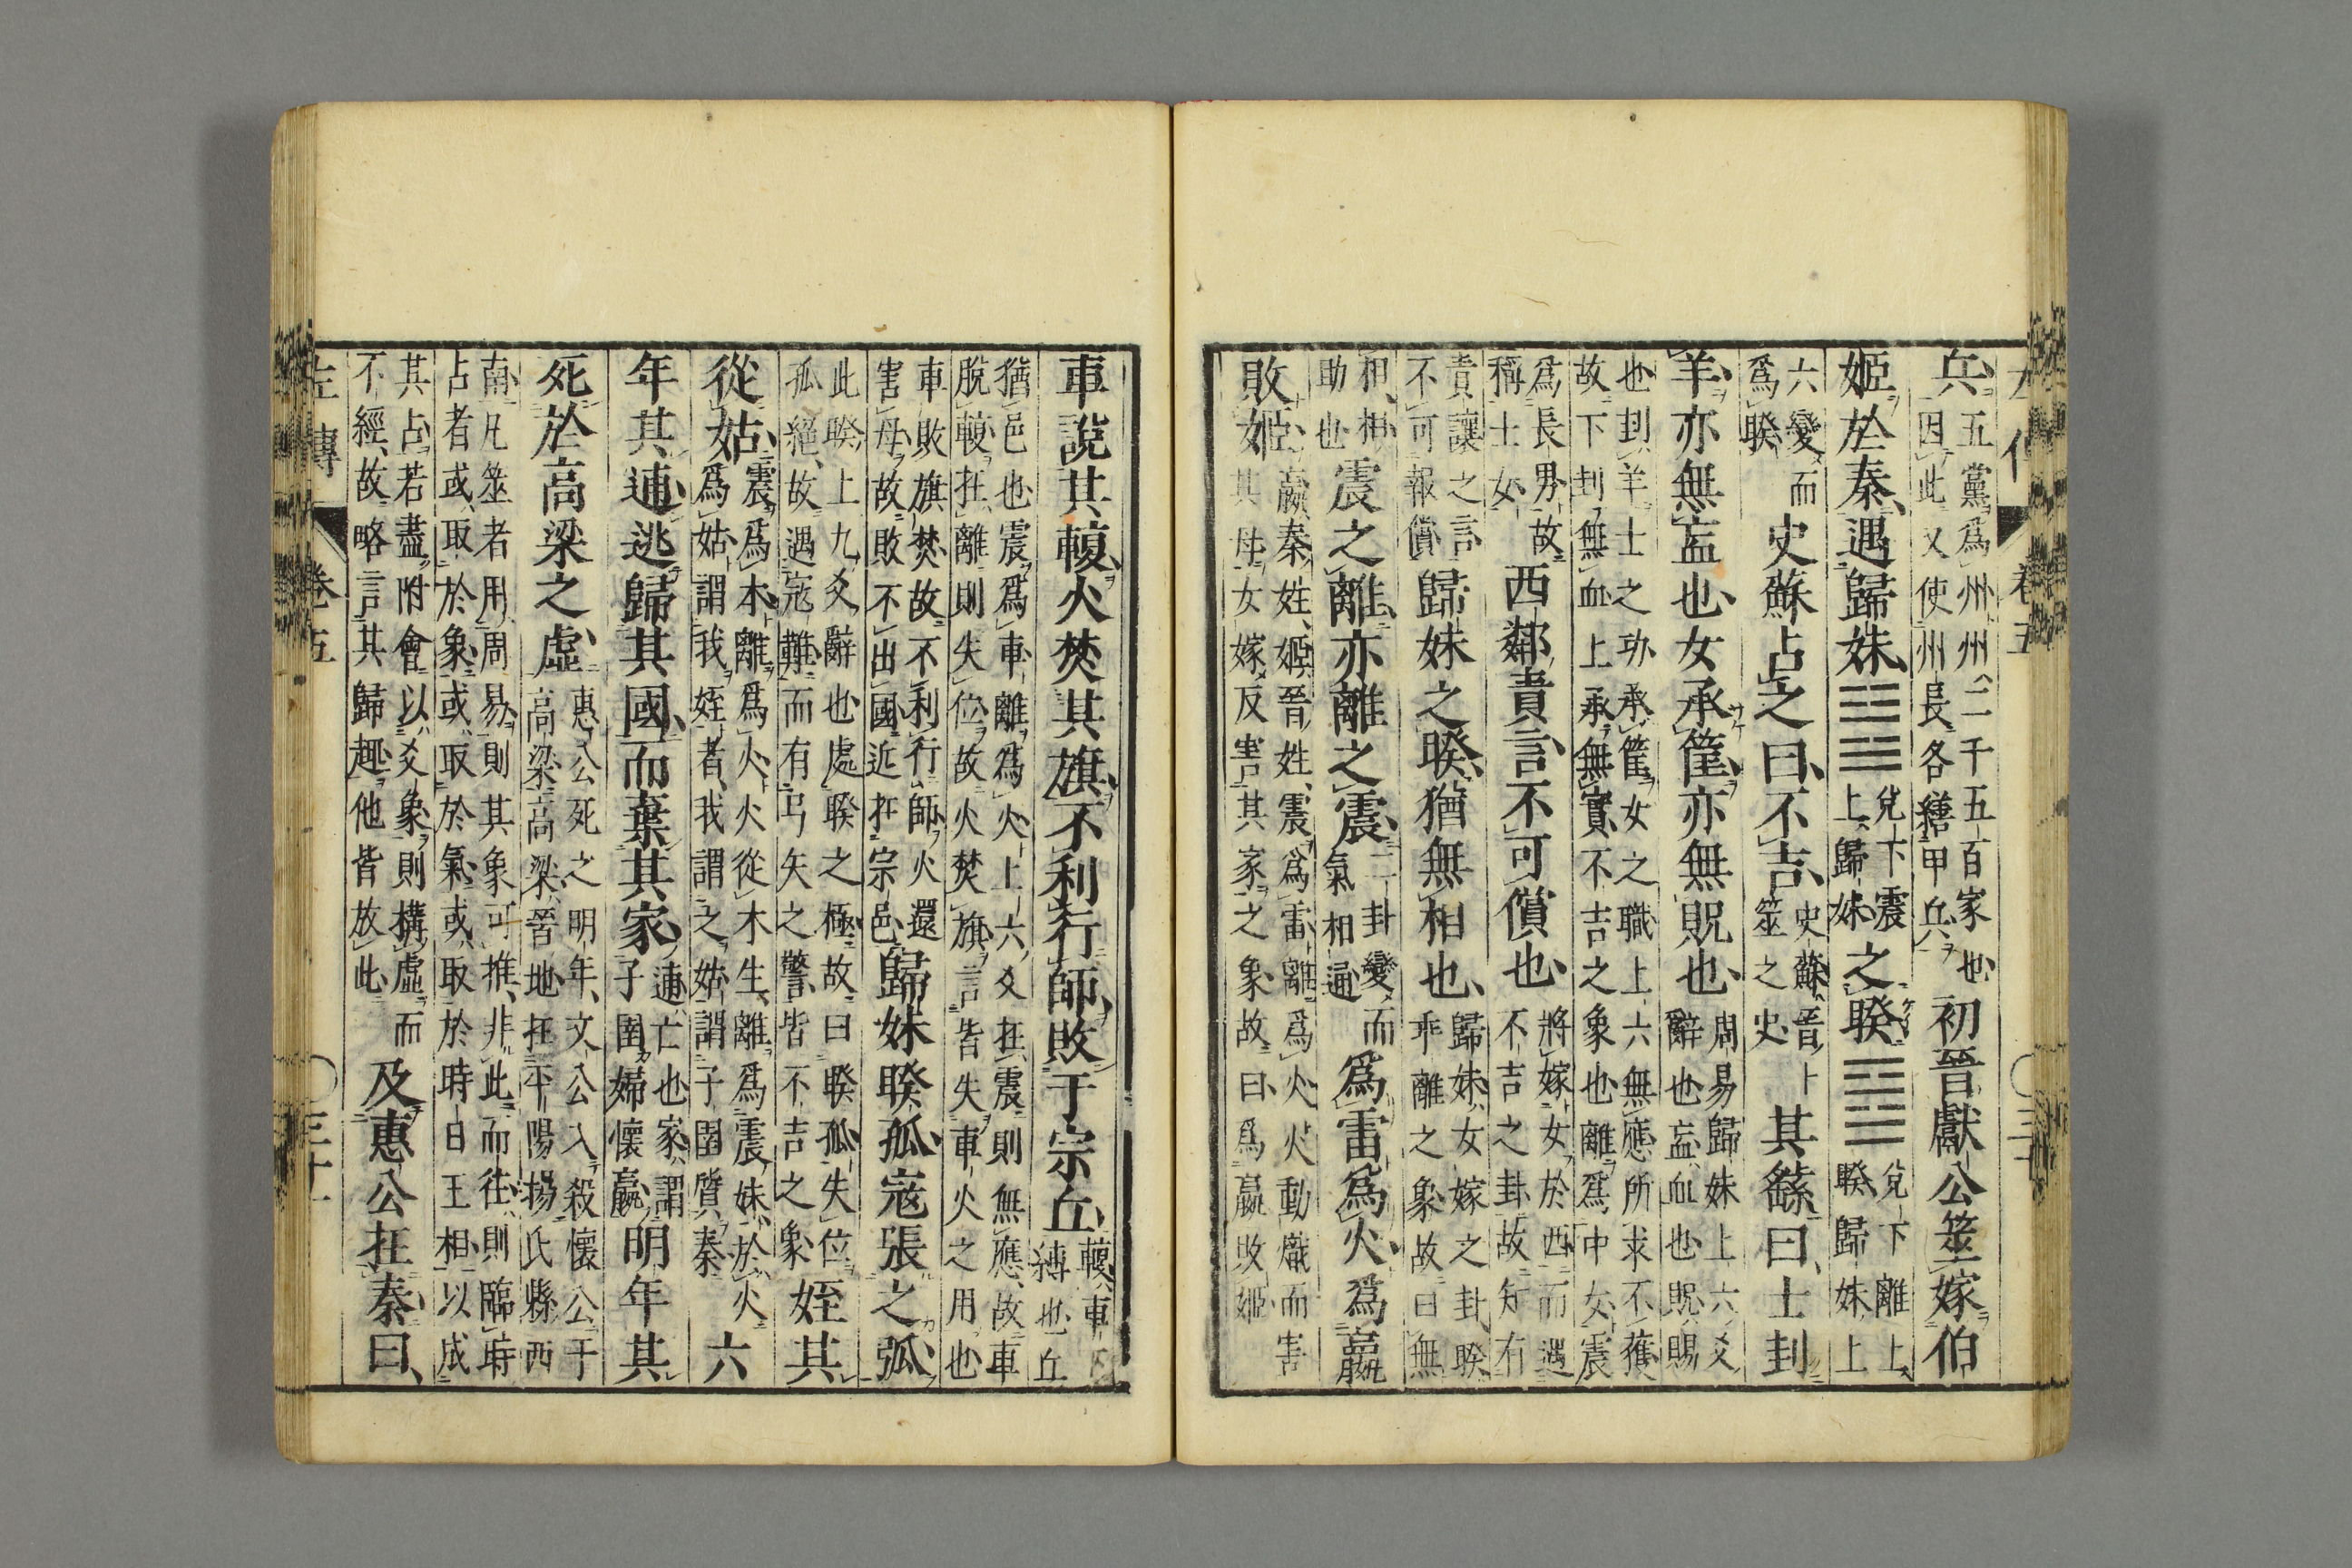 兵五黨爲州州二千五百家也
因此又使州長各繕甲兵初晉獻公筮嫁伯
姬於秦遇歸妹䷵兌下震
上歸妹之睽䷥兌下離上
睽歸妹上
六變而
爲睽史蘇占之曰不吉史蘇晉卜
筮之史其繇曰士刲
羊亦無衁也女承筐亦無貺也周易歸妹上六爻
辭也衁血也貺賜
也刲羊士之功承筐女之職上六無應所求不獲
故下刲無血上承無實不吉之象也離爲中女震
爲長男故
稱士女西鄰責言不可償也將嫁女於西而遇
不吉之卦故知有
責讓之言
不可報償歸妹之睽猶無相也歸妹女嫁之卦睽
乖離之象故曰無
相相
助也震之離亦離之震二卦變而
氣相通爲雷爲火爲嬴
敗姬嬴秦姓姬晉姓震爲雷離爲火火動熾而害
其母女嫁反害其家之象故曰爲嬴敗姬
車說其輹火焚其旗不利行師敗于宗丘輹車
縛也丘
猶邑也震爲車離爲火上六爻在震則無應故車
脫輹在離則失位故火焚旗言皆失車火之用也
車敗旗焚故不利行師火還
害母故敗不出國近在宗邑歸妹睽孤寇張之弧
此睽上九爻辭也處睽之極故曰睽孤失位
孤絕故遇寇難而有弓矢之警皆不吉之象姪其
從姑震爲木離爲火火從木生離爲震妹於火
爲姑謂我姪者我謂之姑謂子圉質秦六
年其逋逃歸其國而棄其家逋亡也家謂
子圉婦懷嬴明年其
死於高梁之虛惠公死之明年文公入殺懷公于
高梁高梁晉地在平陽楊氏縣西
南凡筮者用周易則其象可推非此而往則臨時
占者或取於象或取於氣或取於時日王相以成
其占若盡附會以爻象則構虛而
不經故略言其歸趣他皆放此及惠公在秦曰
左傳 卷五
三十一